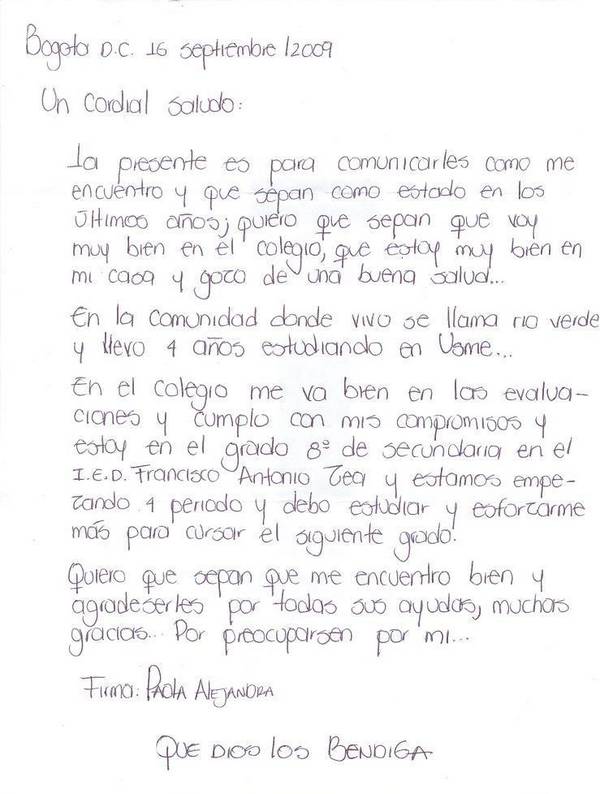 Bogota D.C. 16 septiembre /2009
Un Cordial saludo:
La presente es para comunicarles como me
encuentro y que sepan como estado en los
últimos años; quiero que sepan que voy
muy bien en el colegio, que estoy muy bien en
mi casa y gozo de una buena salud...
En la comunidad donde vivo se llama rio verde
y llevo 4 años estudiando en Usme...
En el colegio me va bien en las evalua-
ciones y cumplo con mis compromisos y
estoy en el grado 8º de secundaria en el
I.E.D. Francisco Antonio Zea y estamos empe-
zando 4 periodo y debo estudiar y esforzarme
más para cursar el siguiente grado.
Quiero que sepan que me encuentro bien y
agradeserles por todas sus ayudas, muchas
gracias... Por preocuparsen por mi...
Firma: Paola Alejandra
Que Dios los Bendiga